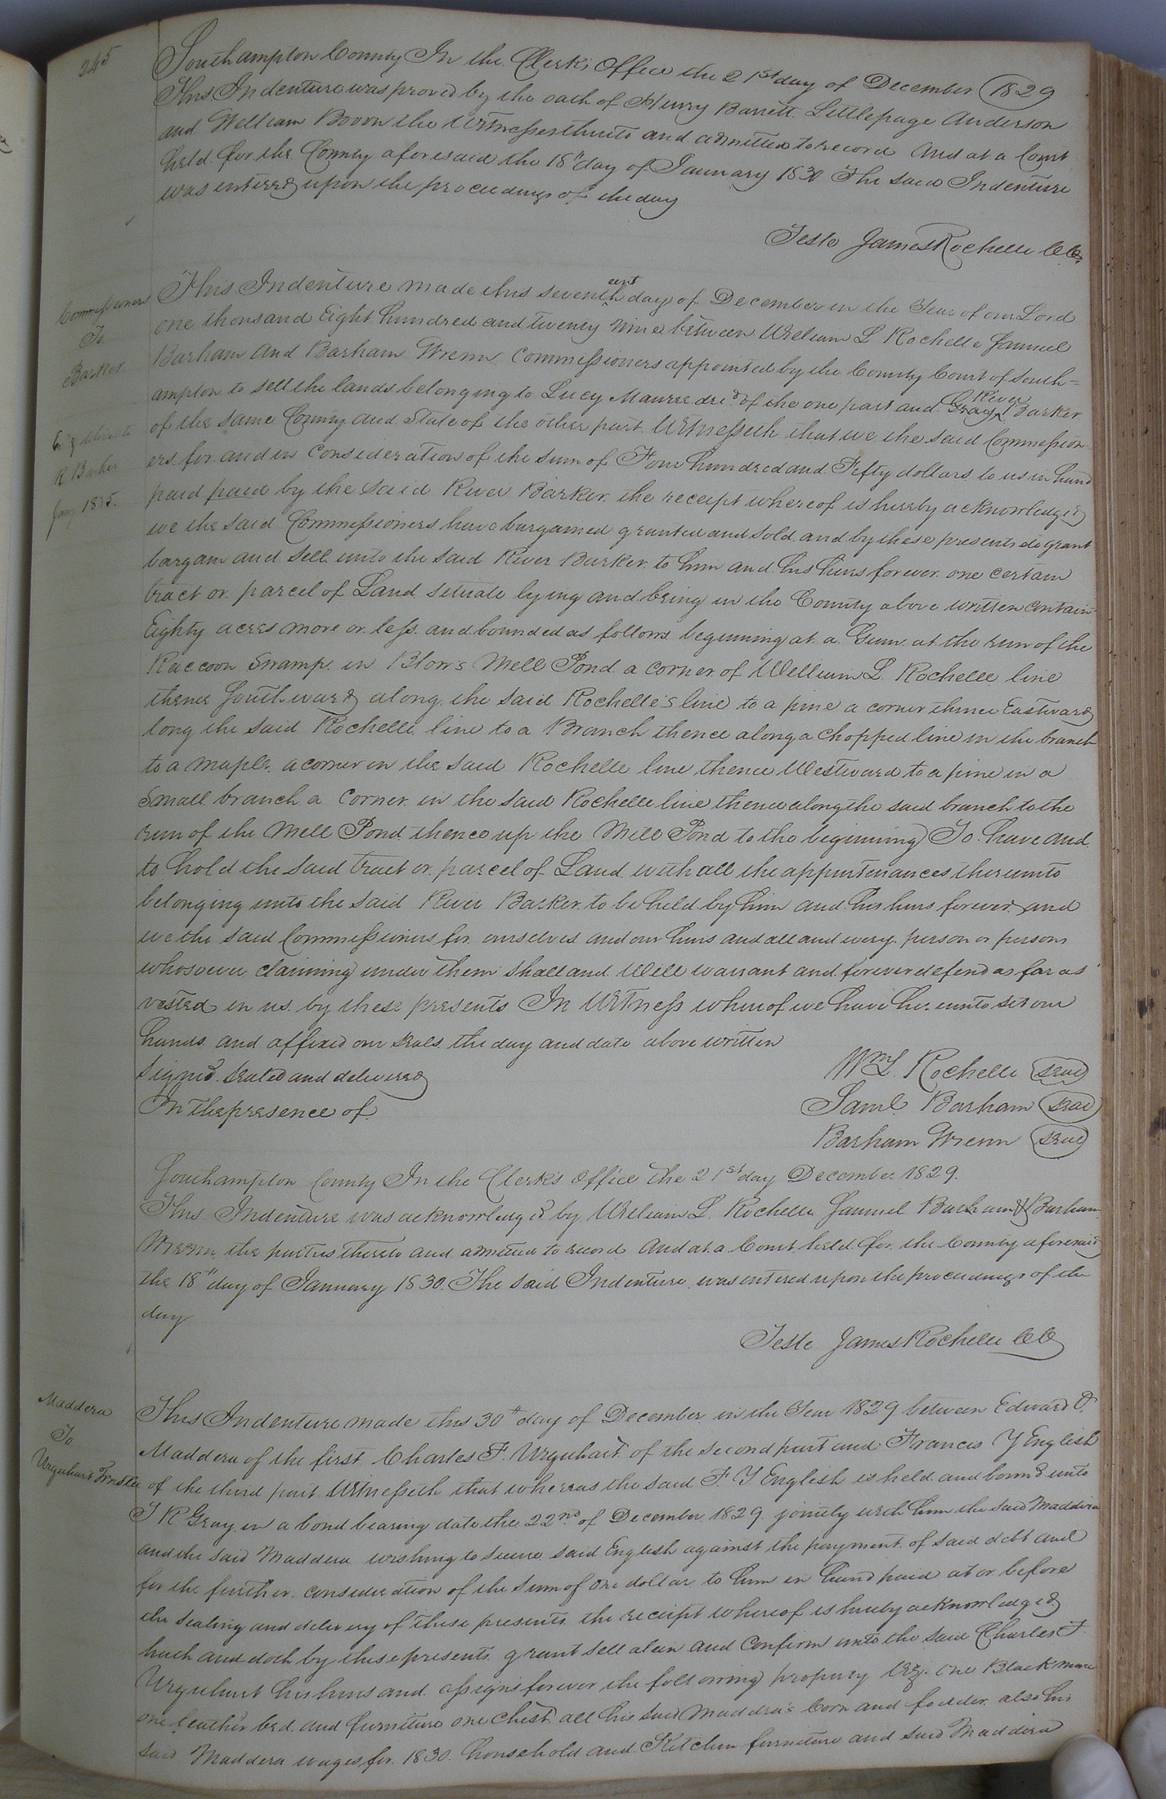 245
Southampton County In the Clerks Office the 21st day of December 1829
This Indenture was proved by the oath of Henry Barrett Littlepage Anderson
and William Boon the Witnesses thereto and admitted to record And at a Court
held for the County aforesaid the 18th day of January 1830 The said Indenture
was entered upon the proceedings of the day
Teste James Rochelle CC
Commissioners
To
Barker
R Barker
1875.
This Indenture made this seventh day of December in the Year of our Lord
one thousand Eight hundred and twenty nine between William L Rochelle Samuel
Barham And Barham Wrenn Commissioners appointed by the County Court of South=
ampton to sell the lands belonging to Lucy Maurie decd of the one part and River Barker
of the same County and State of the other part Witnesseth that we the said Commission
ers for and in Consideration of the sum of Four hundred and Fifty dollars to us in hand
paid paid by the said River Barker the receipt whereof is hereby acknowledged
we the said Commissioners have bargained granted and sold and by these presents do grant
bargain and sell unto the said River Barker to him and his heirs forever one certain
tract or parcel of Land situate lying and being in the County above written contain
Eighty acres more or less and bounded as follows beginning at a Gum at the run of the
Raccoon Swamp in Blows Mill Pond a corner of William L Rochelle line
thence Southward along the said Rochelle's line to a pine a corner thence Eastward
long the said Rochelle line to a Branch thence along a chopped line in the branch
to a maple a corner in the said Rochelle line thence Westward to a pine in a
small branch a corner in the said Rochelle line thence along the said branch to the
run of the Mill Pond thence up the Mill Pond to the beginning To have and
to hold the said tract or parcel of Land with all the appurtenances thereunto
belonging unto the said River Barker to be held by him and his heirs forever and
we the said Commissioners for ourselves and our heirs and all and every person or persons
whosoever claiming under them shall and will warrant and forever defend as far as
vested in us by these presents In Witness whereof we have hereunto set our
hands and affixed our seals the day and date above written
Signd. sealed and delivered
In the presence of
Wm L. Rochelle seal
Saml Barham seal
Barham Wrenn seal
Southampton County In the Clerk's Office the 21st day December 1829.
This Indenture was acknowledged by William L. Rochelle Samuel Barham & Barham
Wrenn the parties thereto and admitted to record And at a Court held for the County aforesaid
the 18th day of January 1830. The said Indenture was entered upon the proceedings of the
day
Teste James Rochelle CC
Maddera
To
Urquhart Trustee
This Indenture made this 30th day of December in the Year 1829 between Edward P.
Maddera of the first Charles F. Urquhart of the second part and Francis Y English
of the third part Witnesseth that whereas the said F. Y English is held and bound unto
J R Gray in a bond bearing date the 22nd of December 1829 jointly with him the said Maddera
and the said Maddera wishing to secure said English against the payment of said debt and
for the further consideration of the sum of one dollar to him in hand paid at or before
the sealing and delivery of these presents the receipt whereof is hereby acknowledged
hath and doth by these presents grant sell alien and confirm unto the said Charles F
Urquhart his heirs and assigns forever the following property Viz: one Black mare
one feather bed and furniture one Chest all his said Maddera's Corn and fodder also his
said Maddera wages for 1830. household and Kitchen furniture and said Maddera